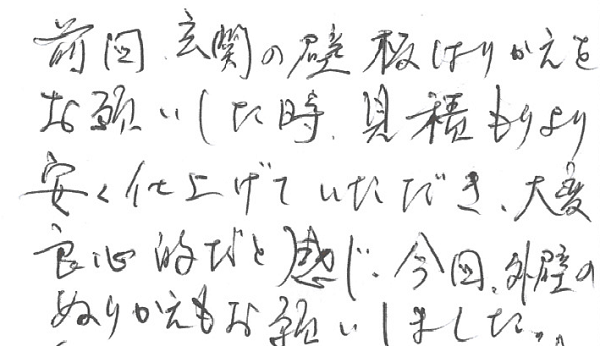 前回、玄関の壁板はりかえを
お願いした時、見積もりより
安く仕上げていただき、大変
良心的だと感じ、今回、外壁の
ぬりかえもお願いしました。